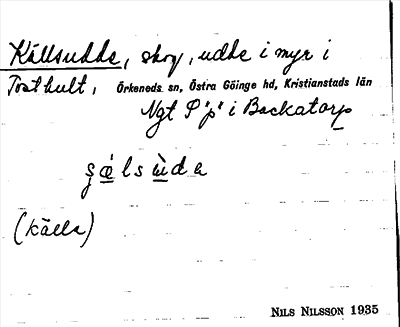 Källsudde, skog, udde i myr i
Tosthult, Örkeneds sn, Östra Göinge hd, Kristianstads län
Ngt S "p" i Backatorp
gǽlsùda
(källa)
NILS NILSSON 1935